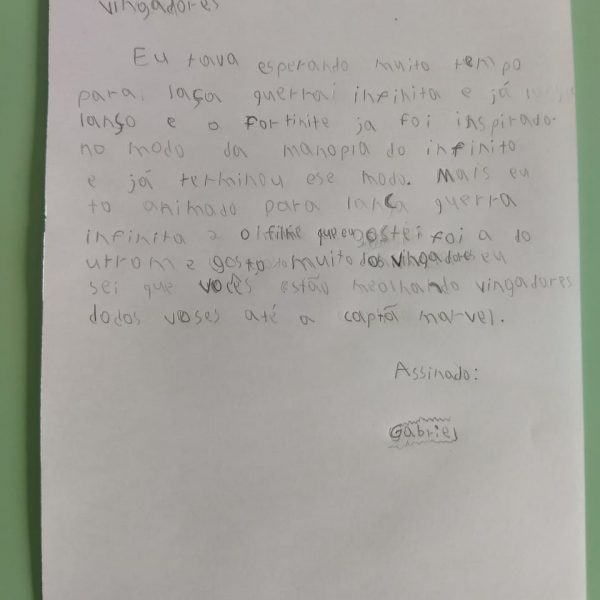 vingadores
Eu tava esperando muito tempo
para laça guerrai infinita e já
lanço e o Fortinite ja foi inspirado.
no modo da manopla do infinito
e já terminou ese modo. Mais eu
to animado para lança guerra
infinita 2 o filhe que eu gostei foi a do
urrom e gosto muito dos vingadores eu
sei que vocês estão meolhando vingadores
dodos voses até a captã marvel.
Assinado:
Gabriel